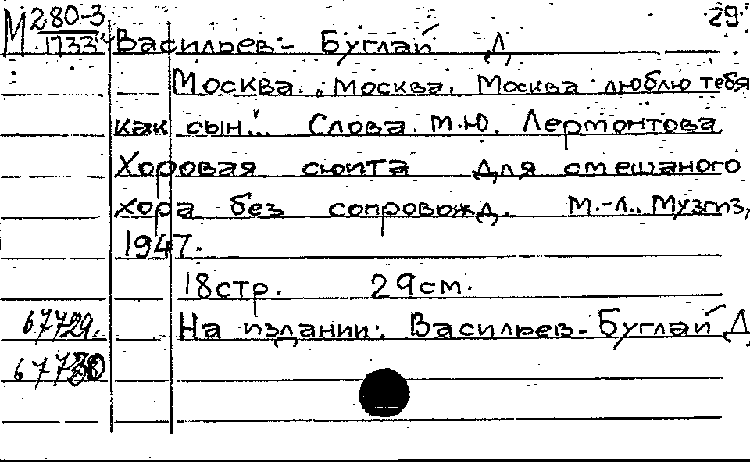 М 280-3 29.
1733 Васильев-Буглай Д
Москва, Москва, Москва люблю тебя
как сын... Слова М.Ю. Лермонтова
Хоровая сюита для смешаного
хора без сопровожд. М.-Л., Музгиз,
1947.
18 стр. 29 см.
67729. На издании: Васильев-Буглай Д
67730